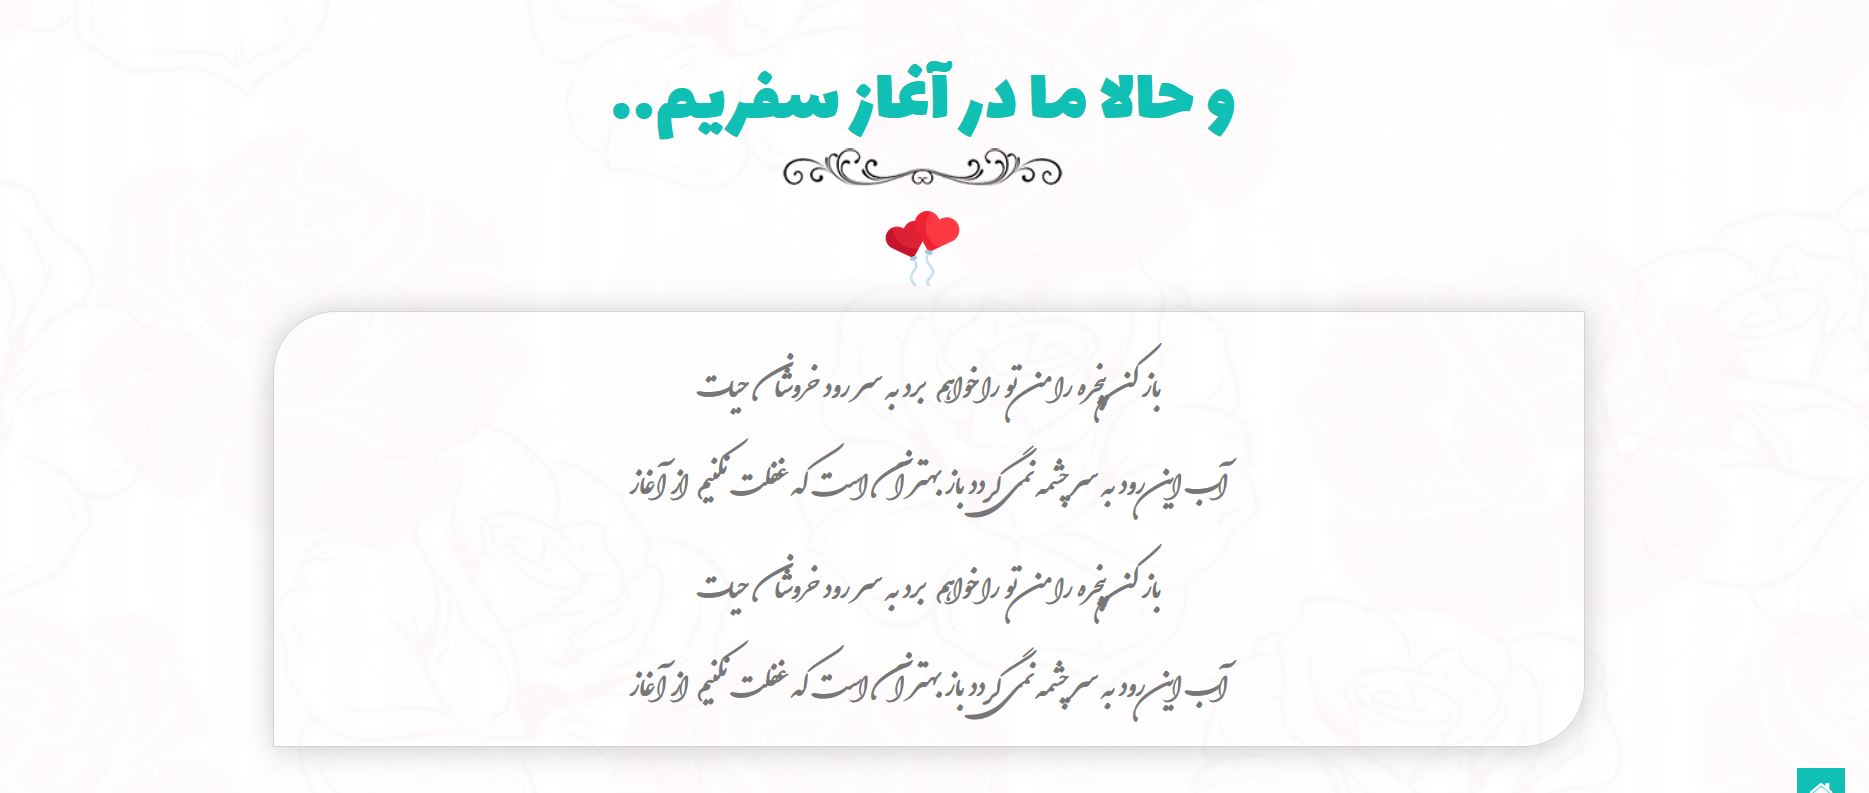 و حالا ما در آغاز سفریم..
باز کن پنجره را من تو را خواهم برد به سر رود خروشان حیات
آب این رود به سر چشمه نمی گردد باز بهتر آن است که غفلت نکنیم از آغاز
باز کن پنجره را من تو را خواهم برد به سر رود خروشان حیات
آب این رود به سر چشمه نمی گردد باز بهتر آن است که غفلت نکنیم از آغاز